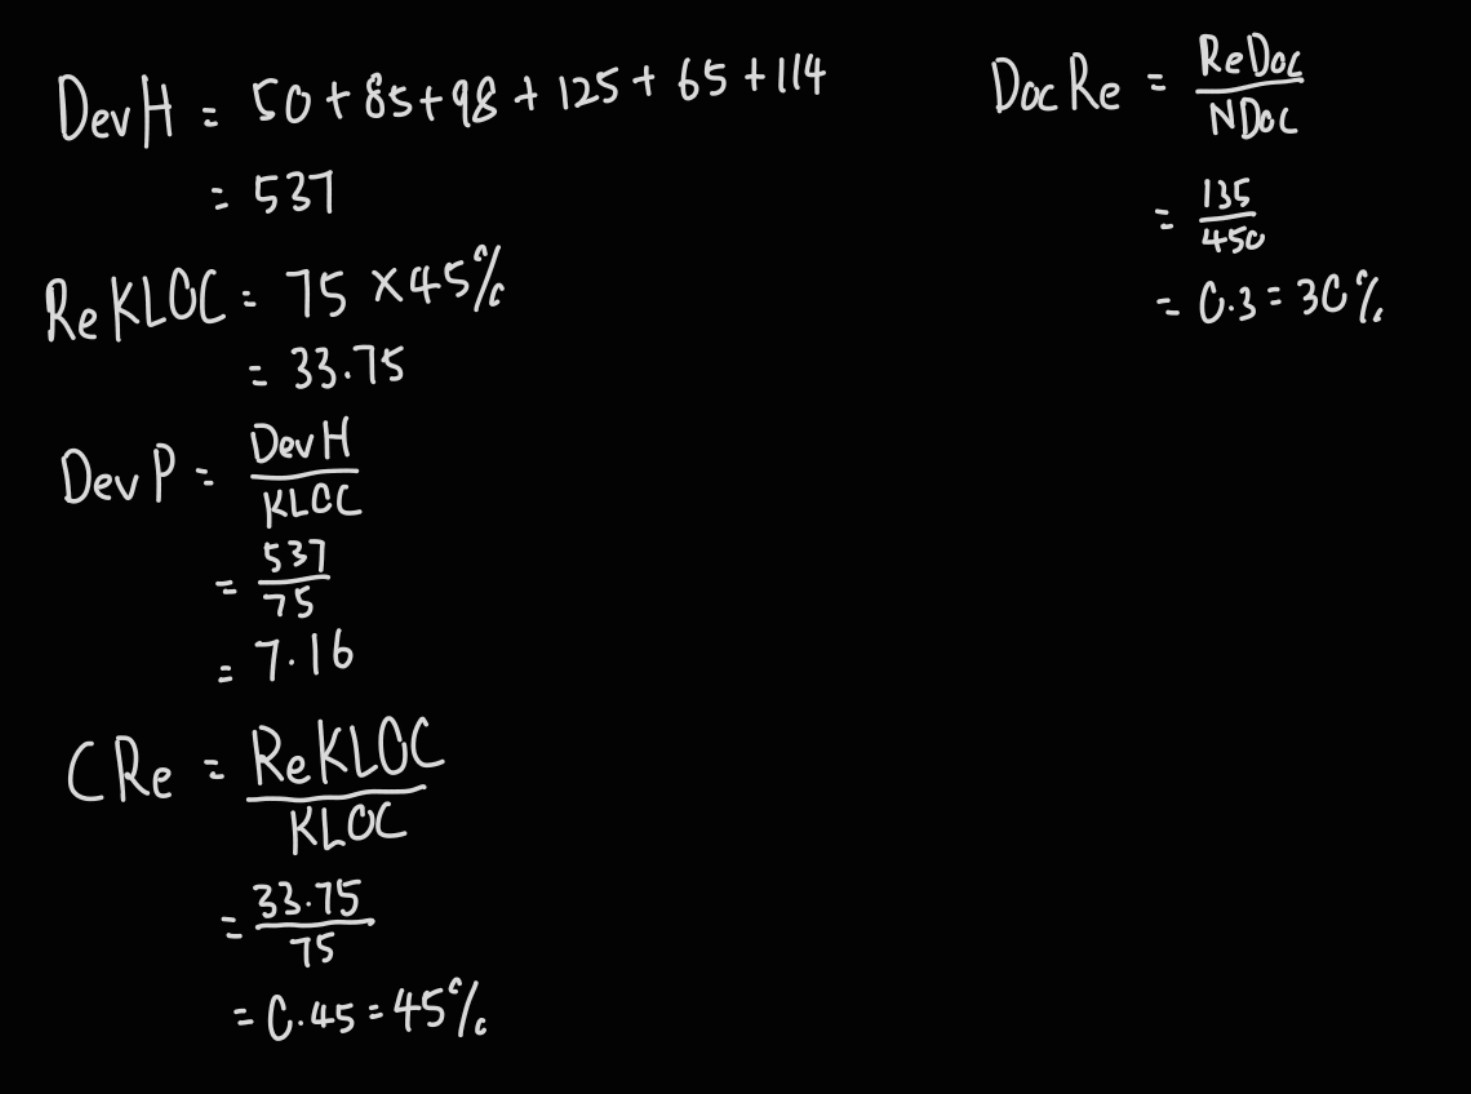 DevH = 50 + 85 + 98 + 125 + 65 + 114
= 537
ReKLOC = 75 × 45%
= 33.75
DevP = DevH / KLOC
= 537 / 75
= 7.16
CRe = ReKLOC / KLOC
= 33.75 / 75
= 0.45 = 45%
DocRe = ReDoc / NDoc
= 135 / 450
= 0.3 = 30%